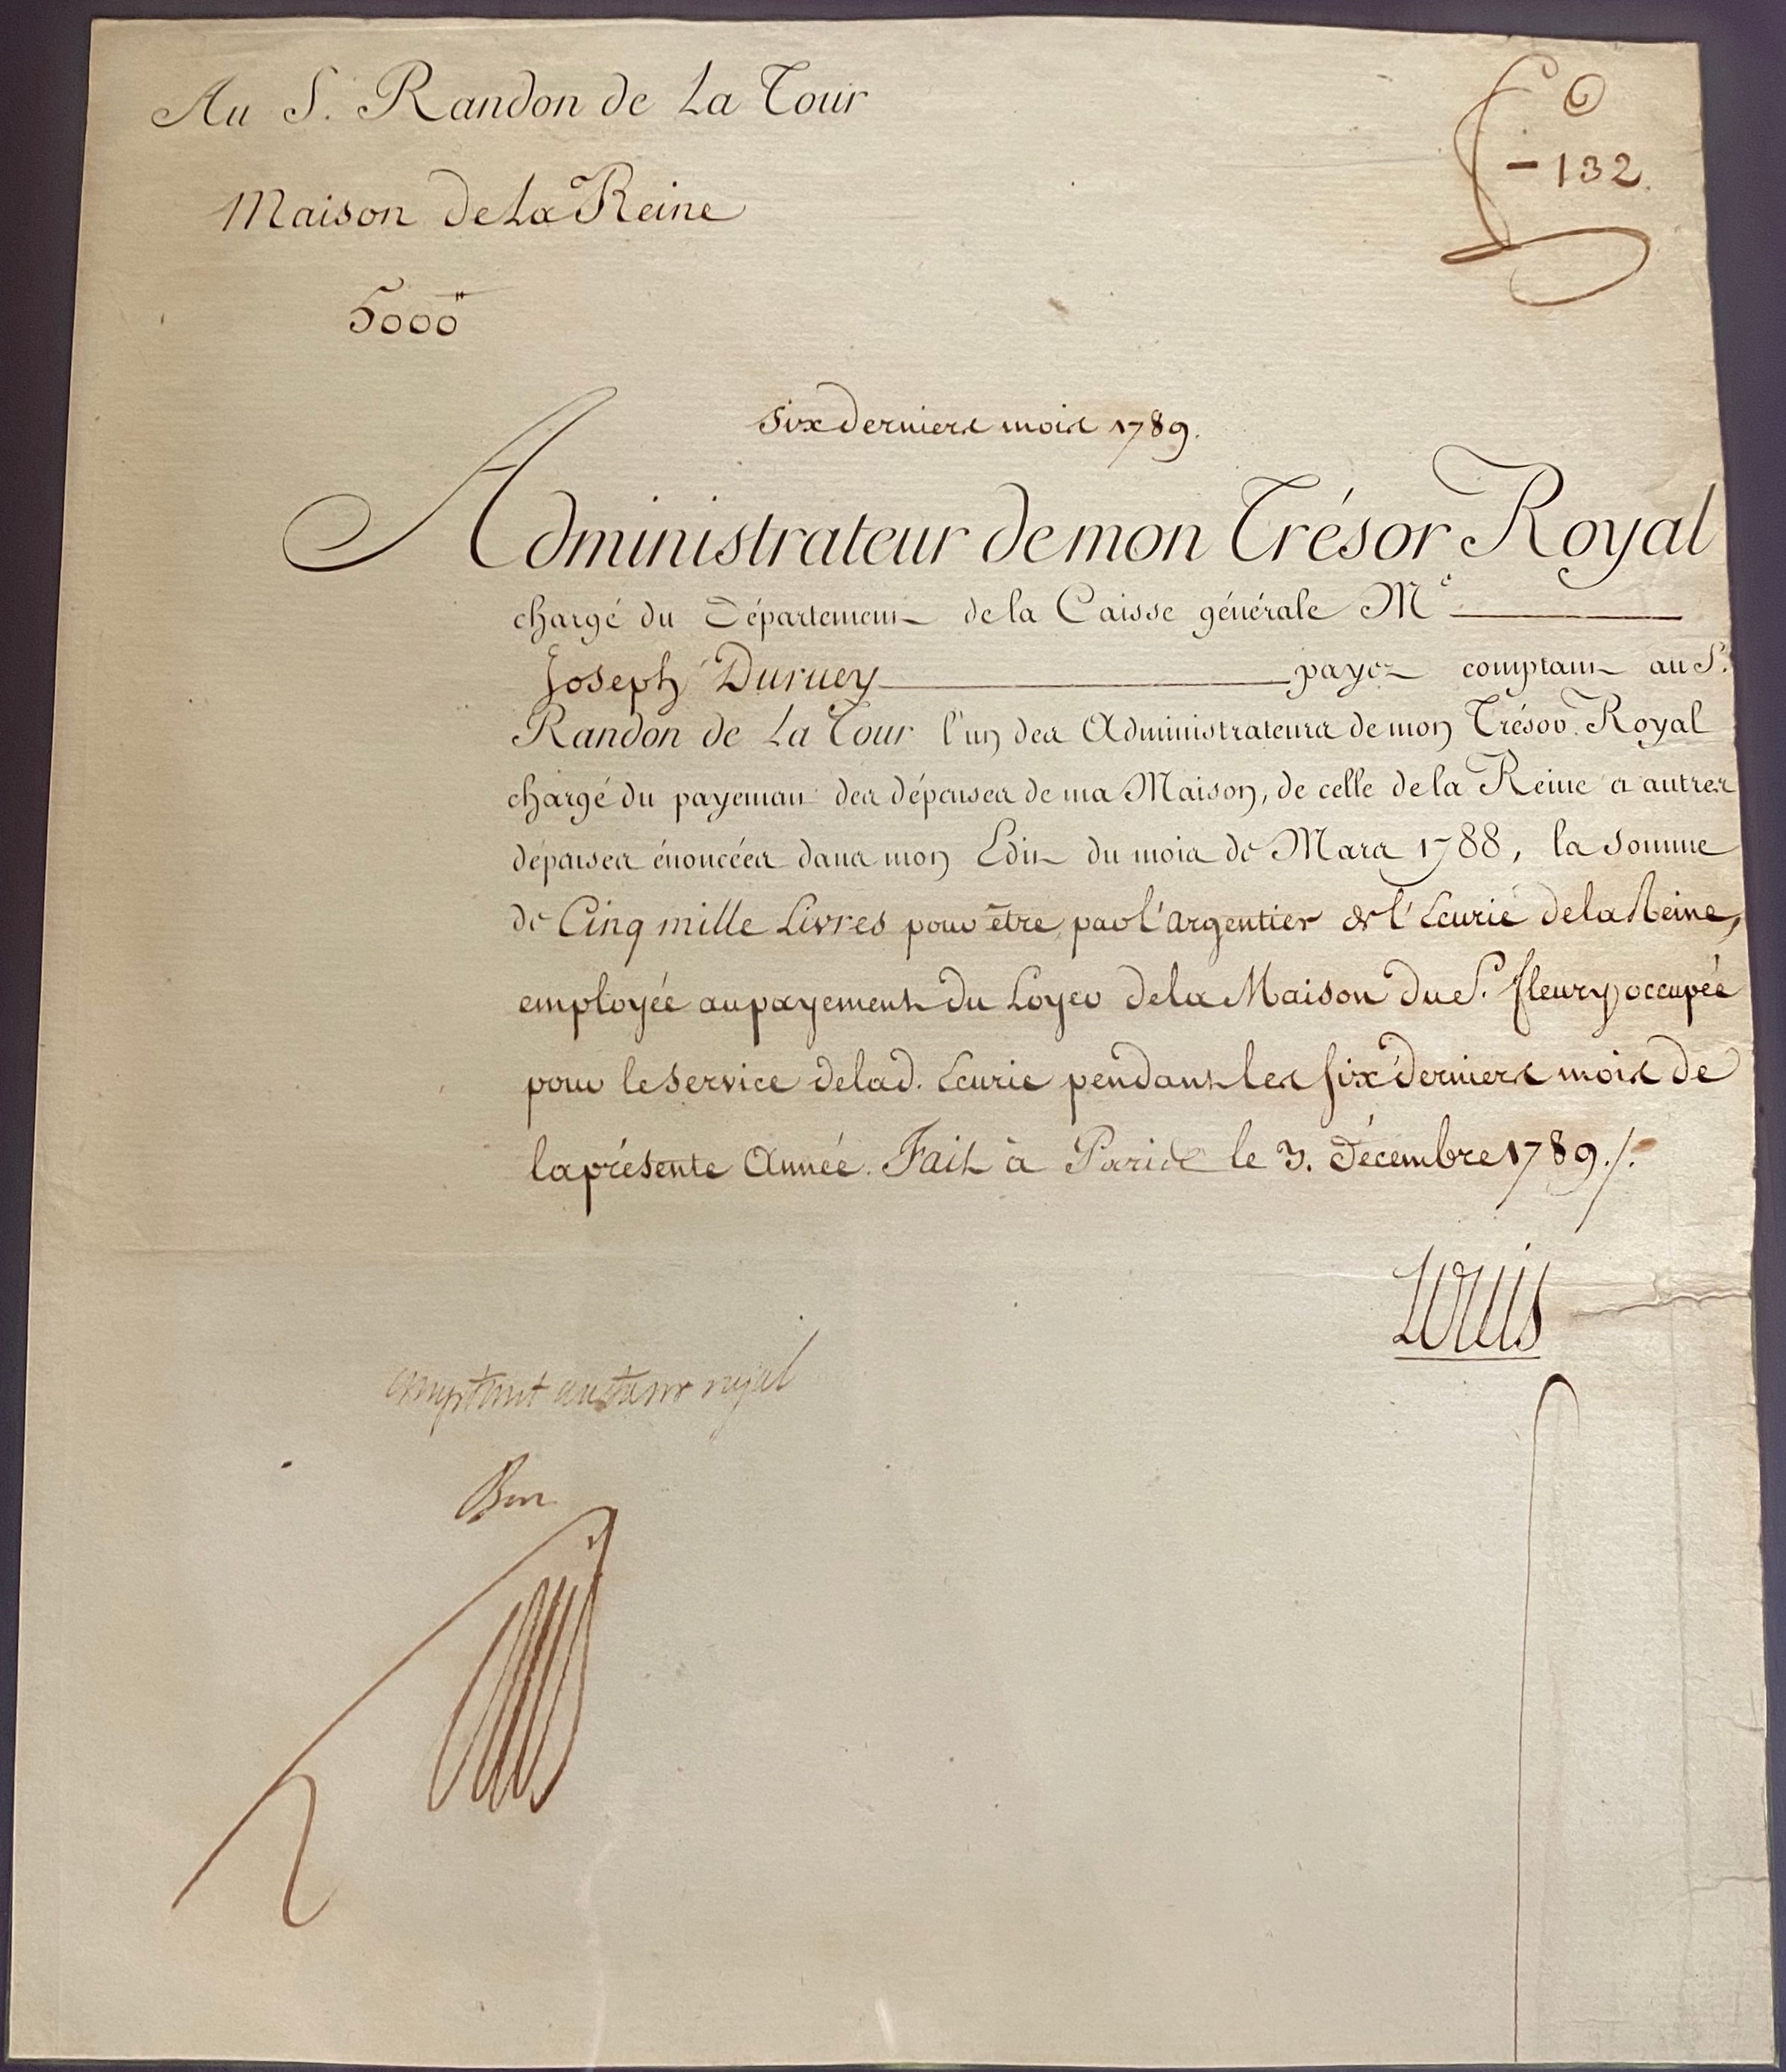 Au S. Randon de La Tour
Maison de La Reine
5000"
6
- 132.
Six derniers mois 1789.
Administrateur de mon Trésor Royal
chargé du Département de la Caisse générale Me
Joseph Duruey payez comptant au S.
Randon de La Tour l'un des Administrateurs de mon Trésor Royal
chargé du payement des dépenses de ma Maison, de celle de la Reine et autres
dépenses énoncées dans mon Edit du mois de Mars 1788, la somme
de Cinq mille Livres pour être par l'argentier de l'Ecurie de la Reine,
employée au payement du Loyer de la Maison du S. fleury occupée
pour le service de lad. Ecurie pendant les six derniers mois de
la présente Année. Fait à Paris le 3. Décembre 1789./.
Louis
comptant au tresor royal
Bon